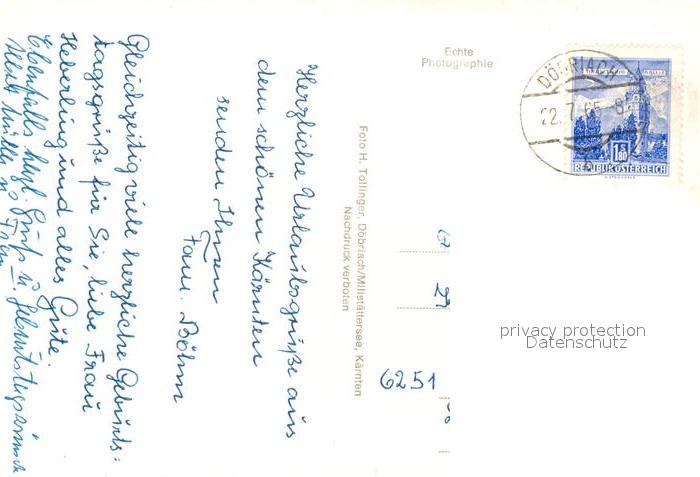 Herzliche Urlaubsgrüße aus
dem schönen Kärnten
senden Ihnen
Fam. Böhm
Gleichzeitig viele herzliche Geburts=
tagsgrüße für Sie, liebe Frau
Heberling und alles Gute.
Ebenfalls herzl. Grüße u. Geburtstagswünsche
Echte
Photographie
Foto H. Tollinger, Döbriach/Millstättersee, Kärnten
Nachdruck verboten
DÖBRIACH
22.7.65-8
1.80
REPUBLIK ÖSTERREICH
6251
privacy protection
Datenschutz